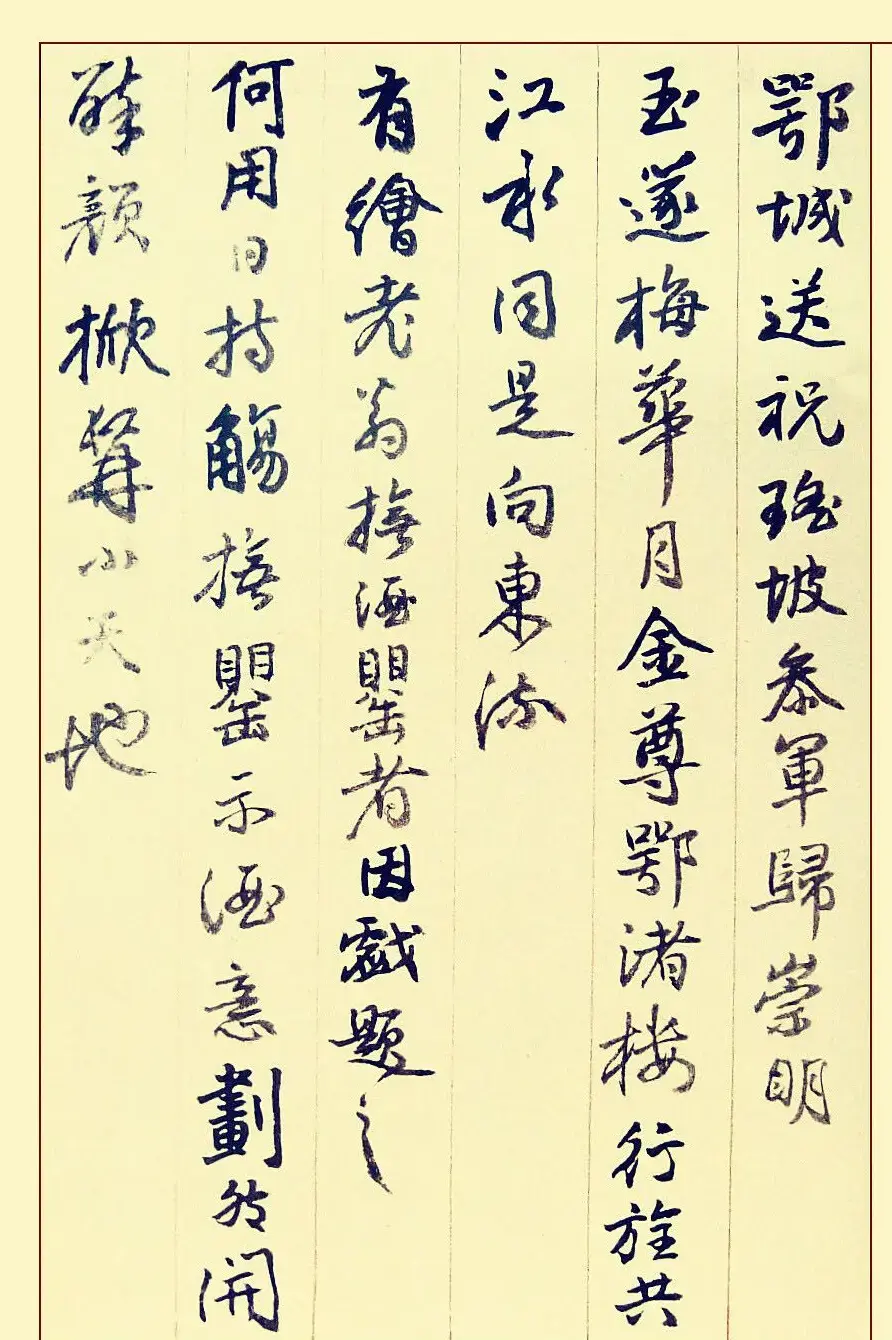 鄂城送祝瑤坡叅軍歸崇明
玉篴梅華月金尊鄂渚樓行旌共
江水同是向東流
有繪老翁撫酒罌者因戲題之
何用日持觴撫罌示酒意劃然開
醉顏掀髯小天地